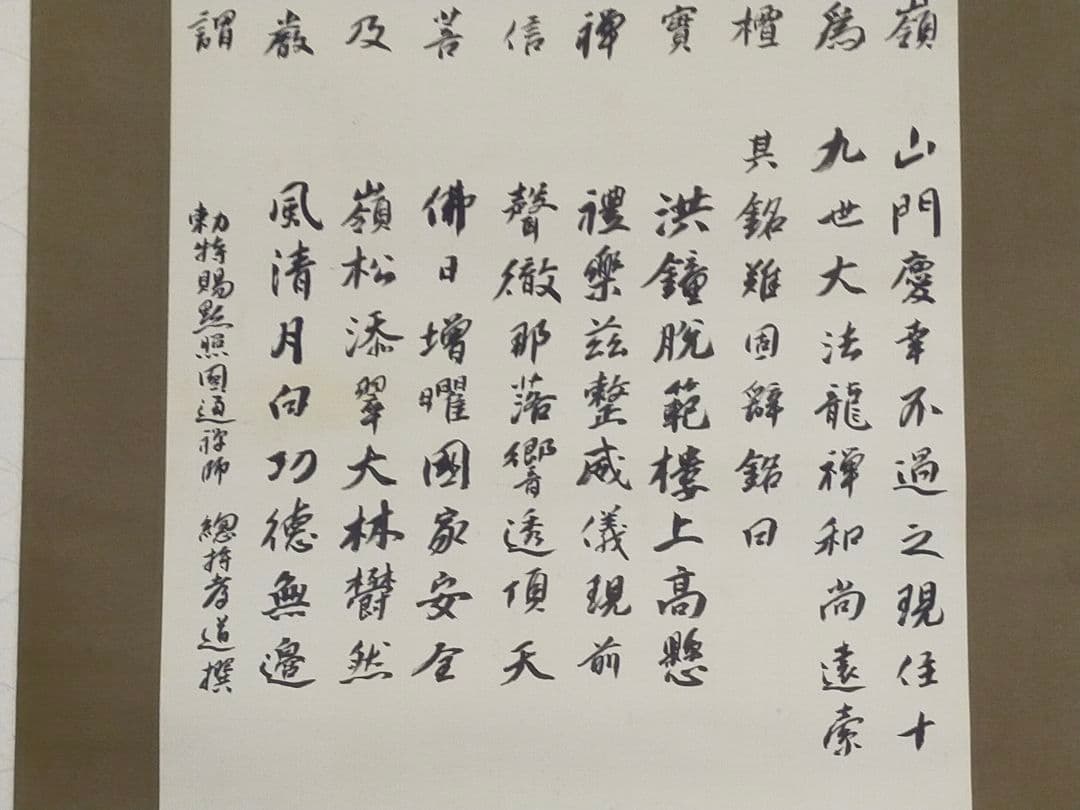 嶺
爲
檀
寶
禪
信
菩
及
嚴
謂
山門慶幸不過之現住十
九世大法龍禪和尚遠索
其銘難固辭銘曰
洪鐘脫範樓上高懸
禮樂茲整威儀現前
聲徹那落響透頂天
佛日增曜國家安全
嶺松添翠大林欝然
風清月白功德無邊
勅特賜默照圓通禅師 總持孝道撰